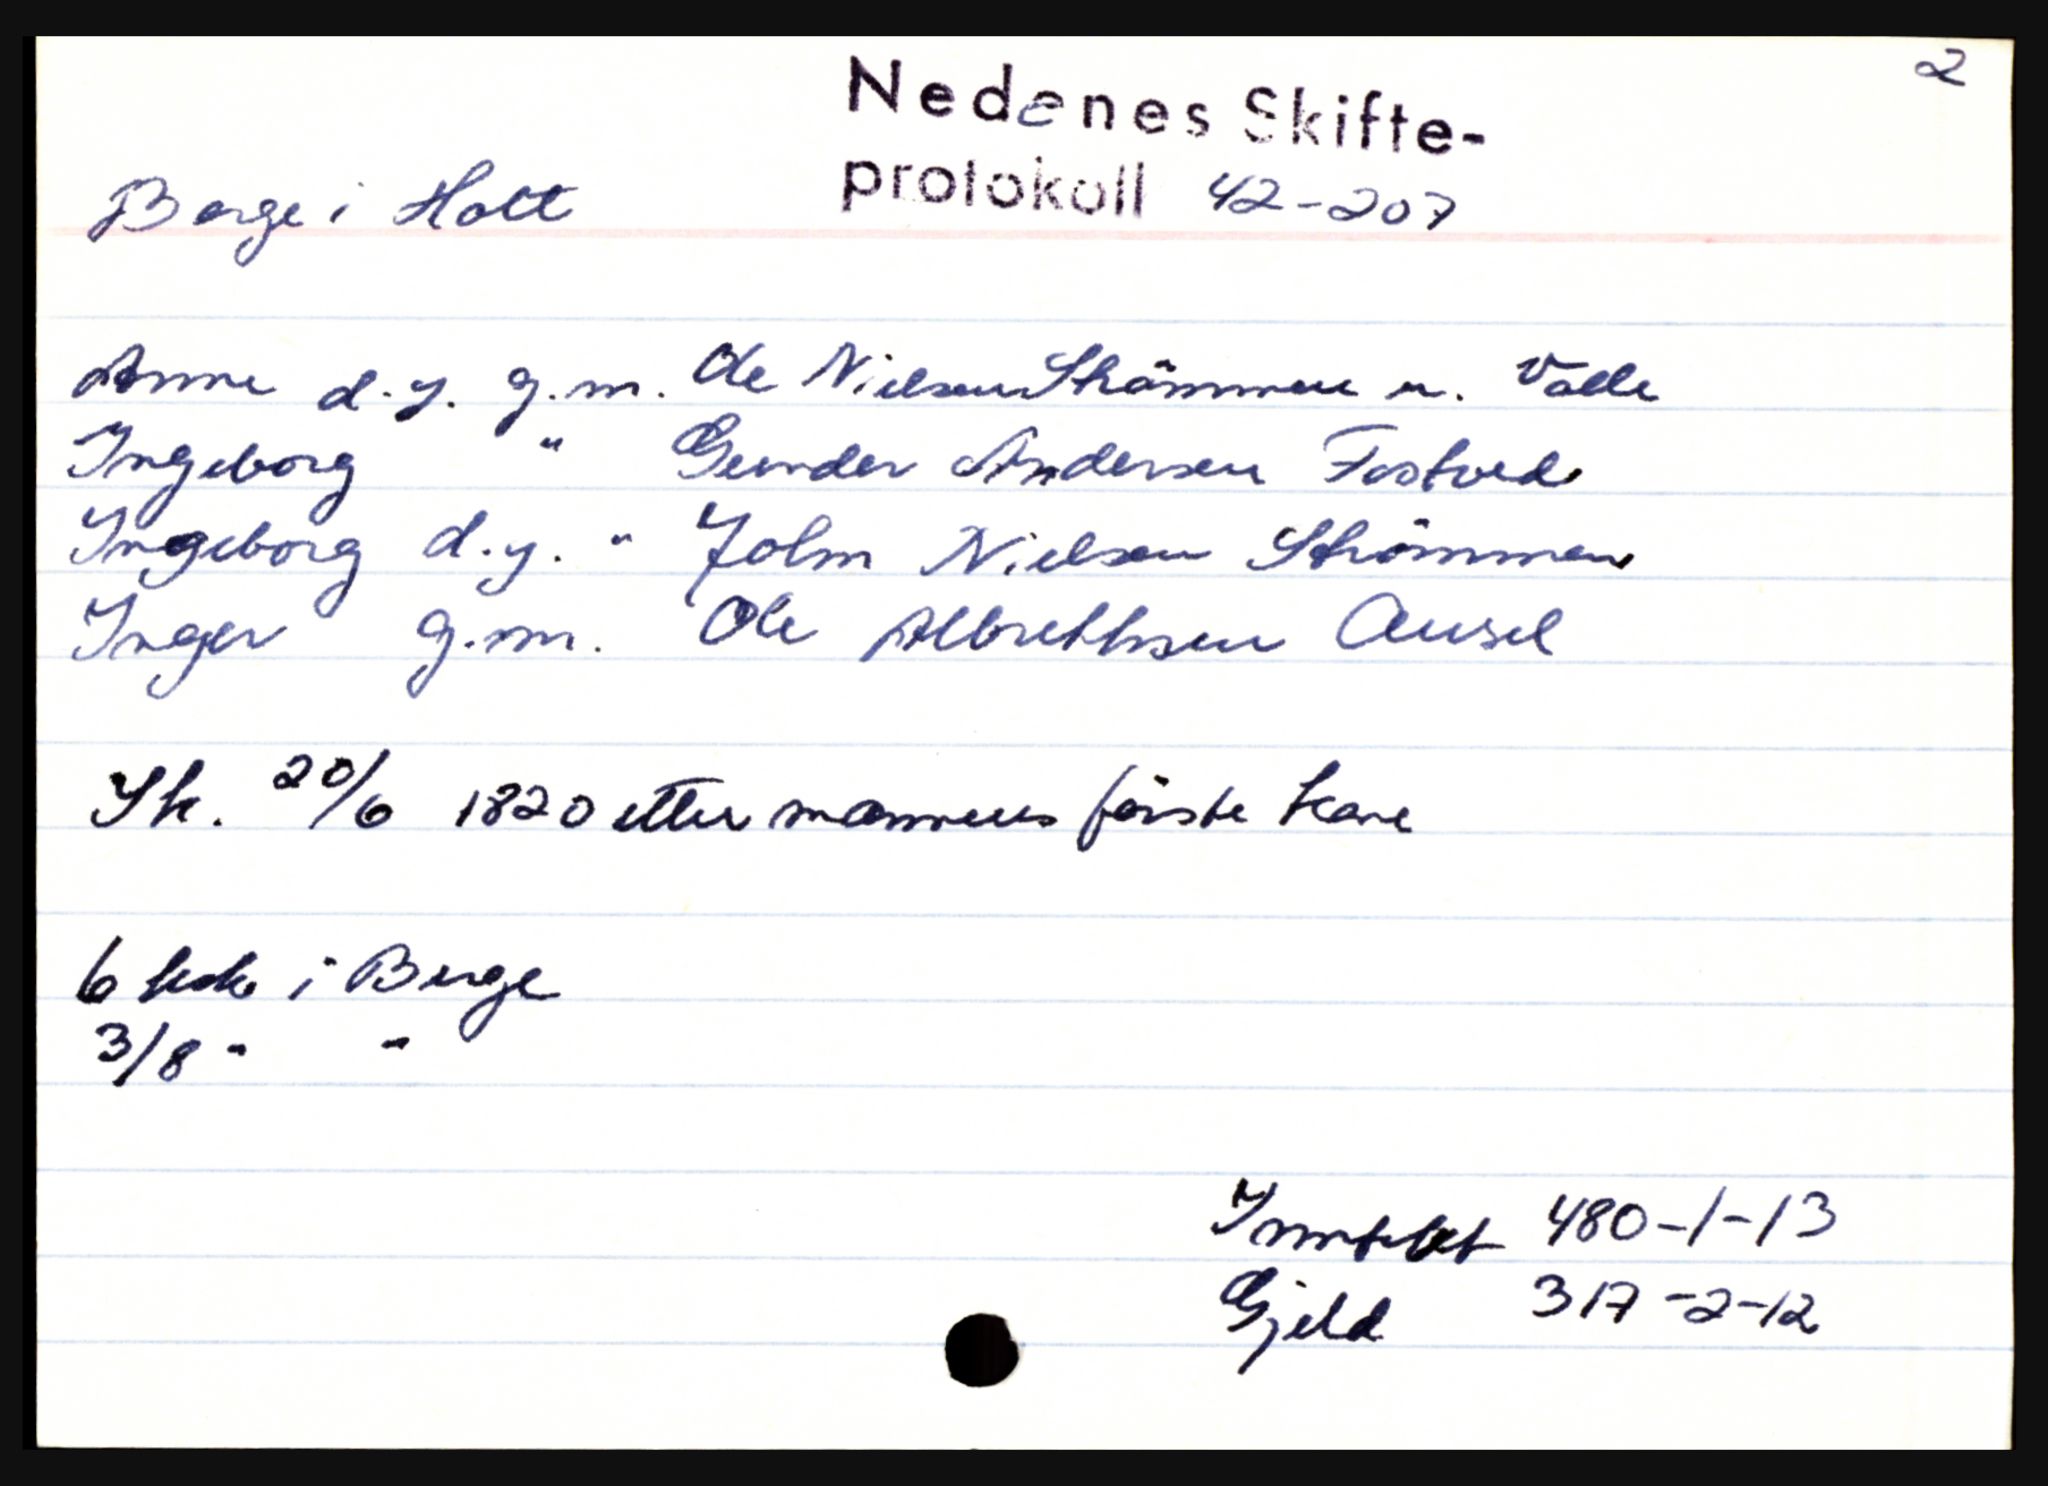 2
Nedenes Skifte-
protokoll 42-207
Berge i Holt
Anne d.y. g.m. Ole Nielsen Strömmen u. Valle
Ingeborg " Gunder Andersen Fostved
Ingeborg d.y. " John Nielsen Strömmen
Inger g.m. Ole Albrethsen Ausel
Sk. 20/6 1820 etter mannens förste kone
6 ksk i Berge
3/8 " "
Inntekt 480-1-13
Gjeld 317-2-12